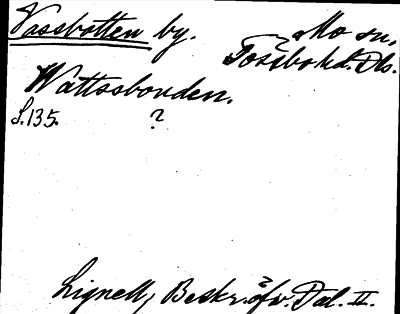 Vassbotten by. Mo sn,
Tössbo hd. Dls.
Wattsbonden.
S. 135. ?
Lignell, Beskr. öfv. Dal. II.